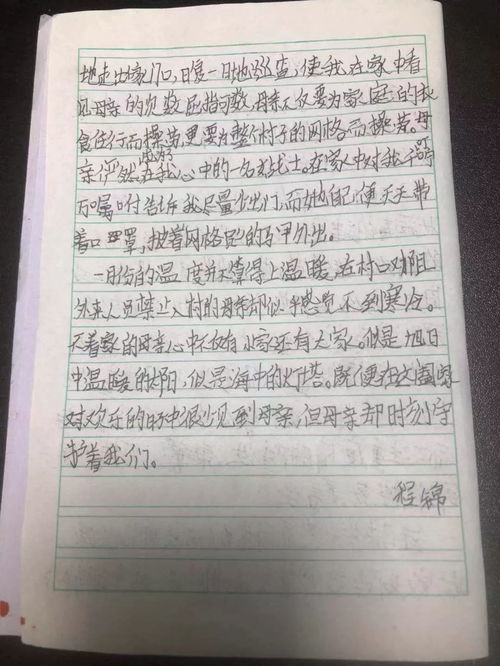 地走出家门口,日复一日地巡查,使我在家中看
见母亲的次数屈指可数,母亲不仅要为家庭的衣
食住行而操劳更要为整个村子的网格而操劳。母
亲俨然成为我心中的一名战士。在家中对我千叮
万嘱咐告诉我尽量少出门,而她自己便天天带
着口罩,披着网格员的马甲外出。
一月份的温度并不算得上温暖,在村口劝阻
外来人员禁止入村的母亲却似乎感觉不到寒冷。
不着家的母亲心中不仅有小家还有大家。似是旭日
中温暖的骄阳,似是海中的灯塔。既便在这团圆
对欢乐的日子中很少见到母亲,但母亲却时刻守
护着我们。
程锦